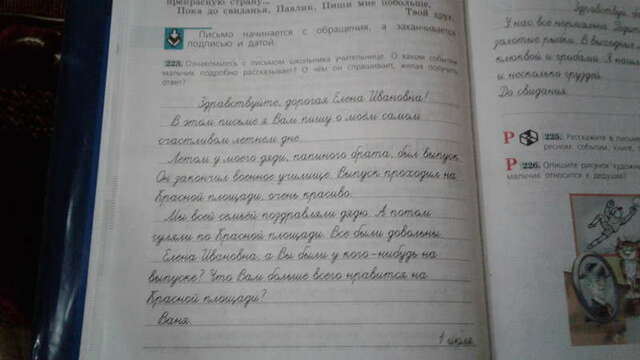 прекрасную страну...
Пока до свиданья, Павлик. Пиши мне побольше,
Твой друг.
Письмо начинается с обращения, а заканчивается
подписью и датой.
223. Ознакомьтесь с письмом школьника учительнице. О каком событии
мальчик подробно рассказывает? О чём он спрашивает, желая получить
ответ?
Здравствуйте, дорогая Елена Ивановна!
В этом письме я Вам пишу о моём самом
счастливом летнем дне.
Летом у моего дяди, папиного брата, был выпуск.
Он закончил военное училище. Выпуск проходил на
Красной площади, очень красиво.
Мы всей семьёй поздравляли дядю. А потом
гуляли по Красной площади. Все были довольны.
Елена Ивановна, а Вы были у кого-нибудь на
выпуске? Что Вам больше всего нравится на
Красной площади?
Ваня.
1 июля.
Здравствуй
У нас все нормально.
золотые рыбки. В выходные
клюквой и грибами. Я нашёл
и несколько груздей.
До свидания.
Р 225. Расскажите в письме
ресном событии, книге,
Р 226. Опишите рисунок художни
мальчик относится к дедушке?